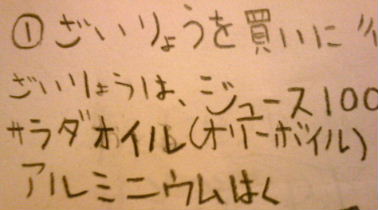 ① ざいりょうを買いに
ざいりょうは、ジュース100
サラダオイル(オリーボイル)
アルミニウムはく